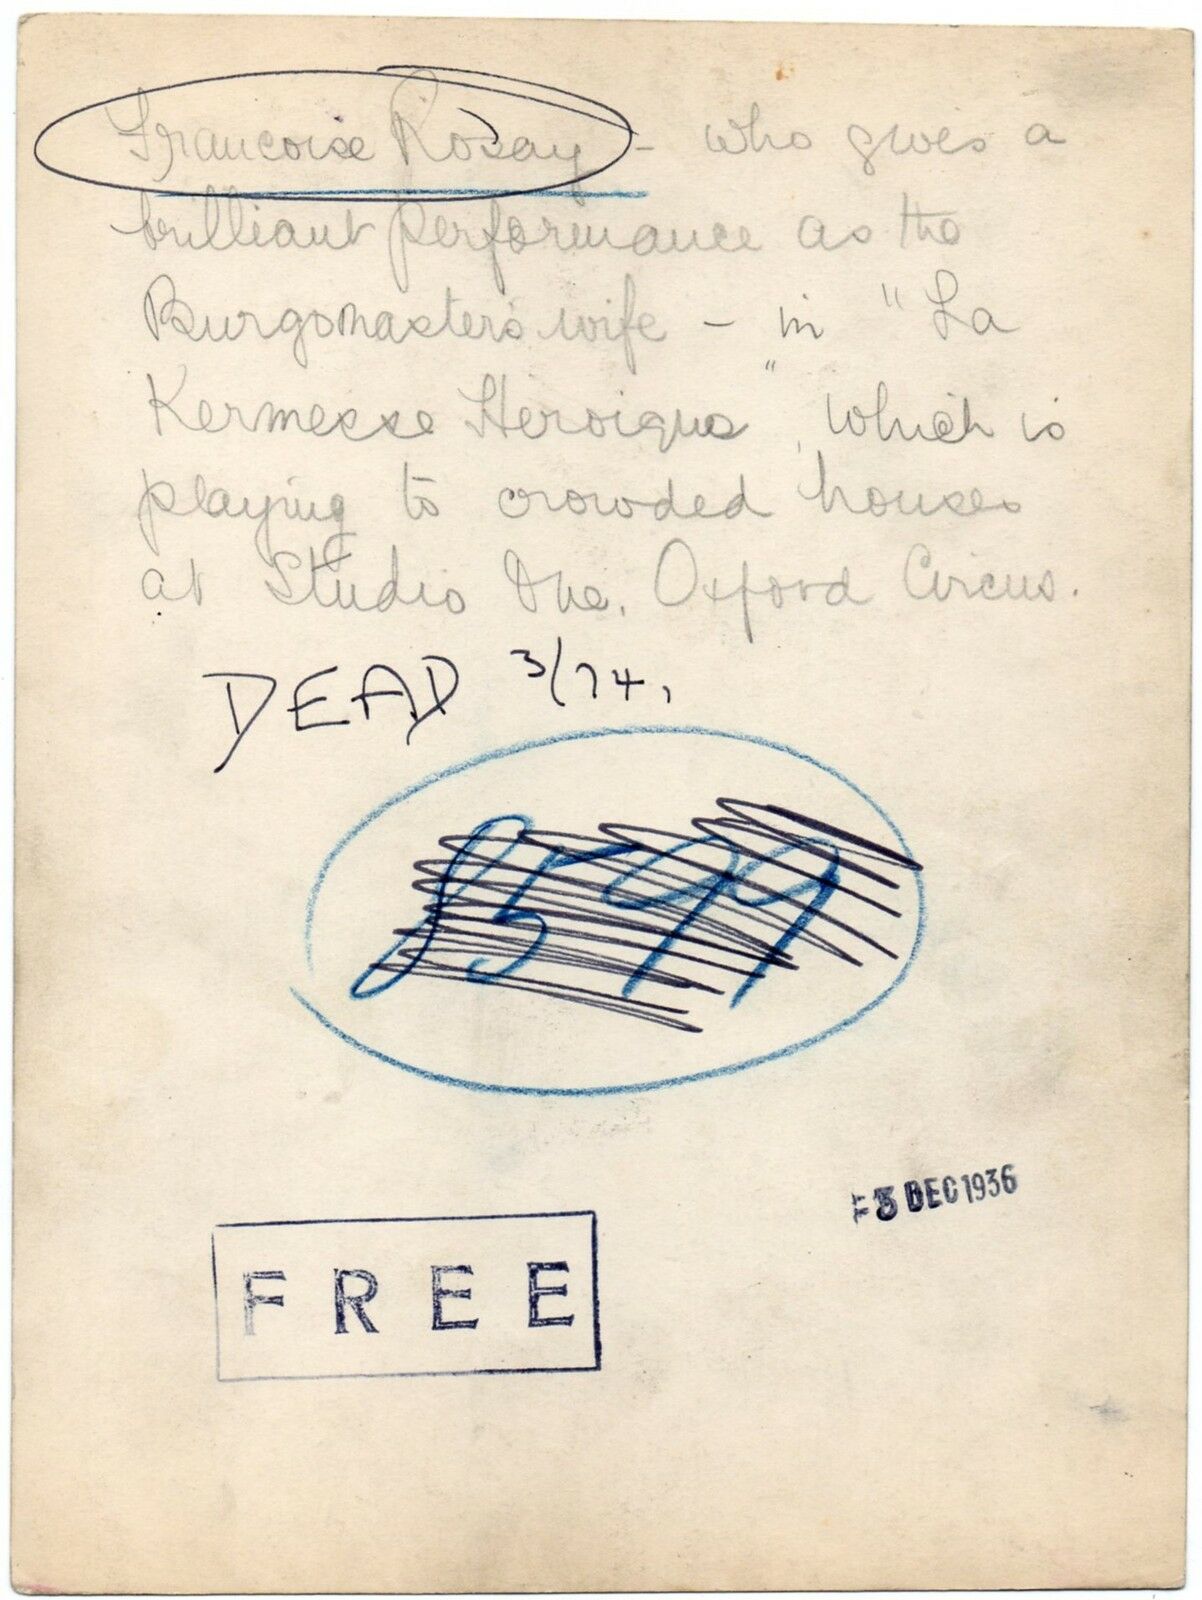 Francoise Rosay - who gives a
brilliant performance as the
Burgomaster's wife - in "La
Kermesse Heroique", which is
playing to crowded houses
at Studio One, Oxford Circus.
DEAD 3/74.
DEC 1936
FREE